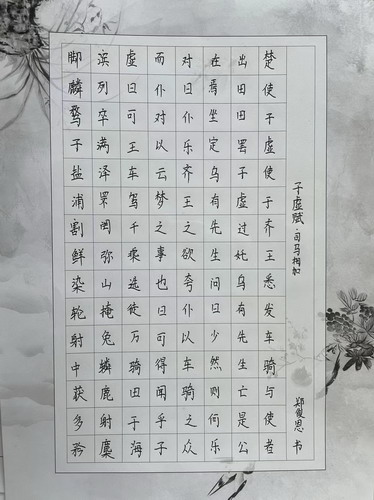 子虚赋·司马相如
楚使子虚使于齐王悉发车骑与使者
出田田罢子虚过奼乌有先生亡是公
在焉坐定乌有先生问曰少然则何乐
对曰仆乐齐王之欲夸仆以车骑之众
而仆对以云梦之事也曰可得闻乎子
虚曰可王车驾千乘选徒万骑田于海
滨列卒满泽罘罔弥山掩兔辚鹿射麋
脚麟骛于盐浦割鲜染轮射中获多矜
郑俊恩书